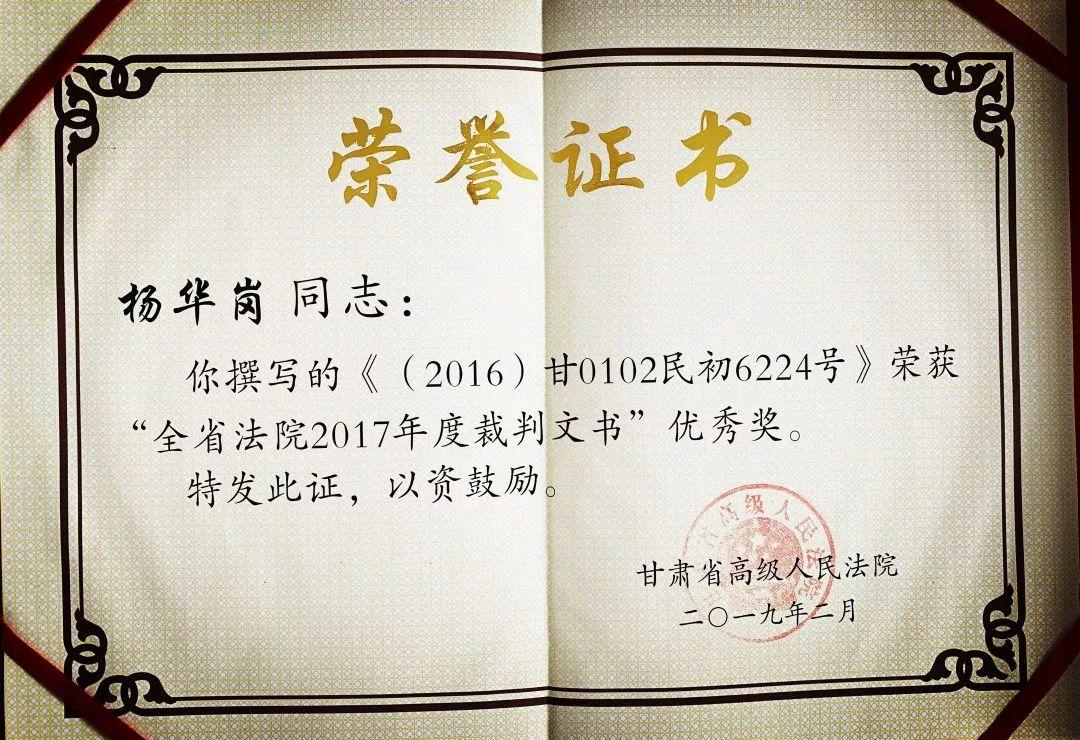 荣誉证书
杨华岗 同志：
你撰写的《（2016）甘0102民初6224号》荣获
“全省法院2017年度裁判文书”优秀奖。
特发此证，以资鼓励。
省高级人民法院
甘肃省高级人民法院
二〇一九年二月